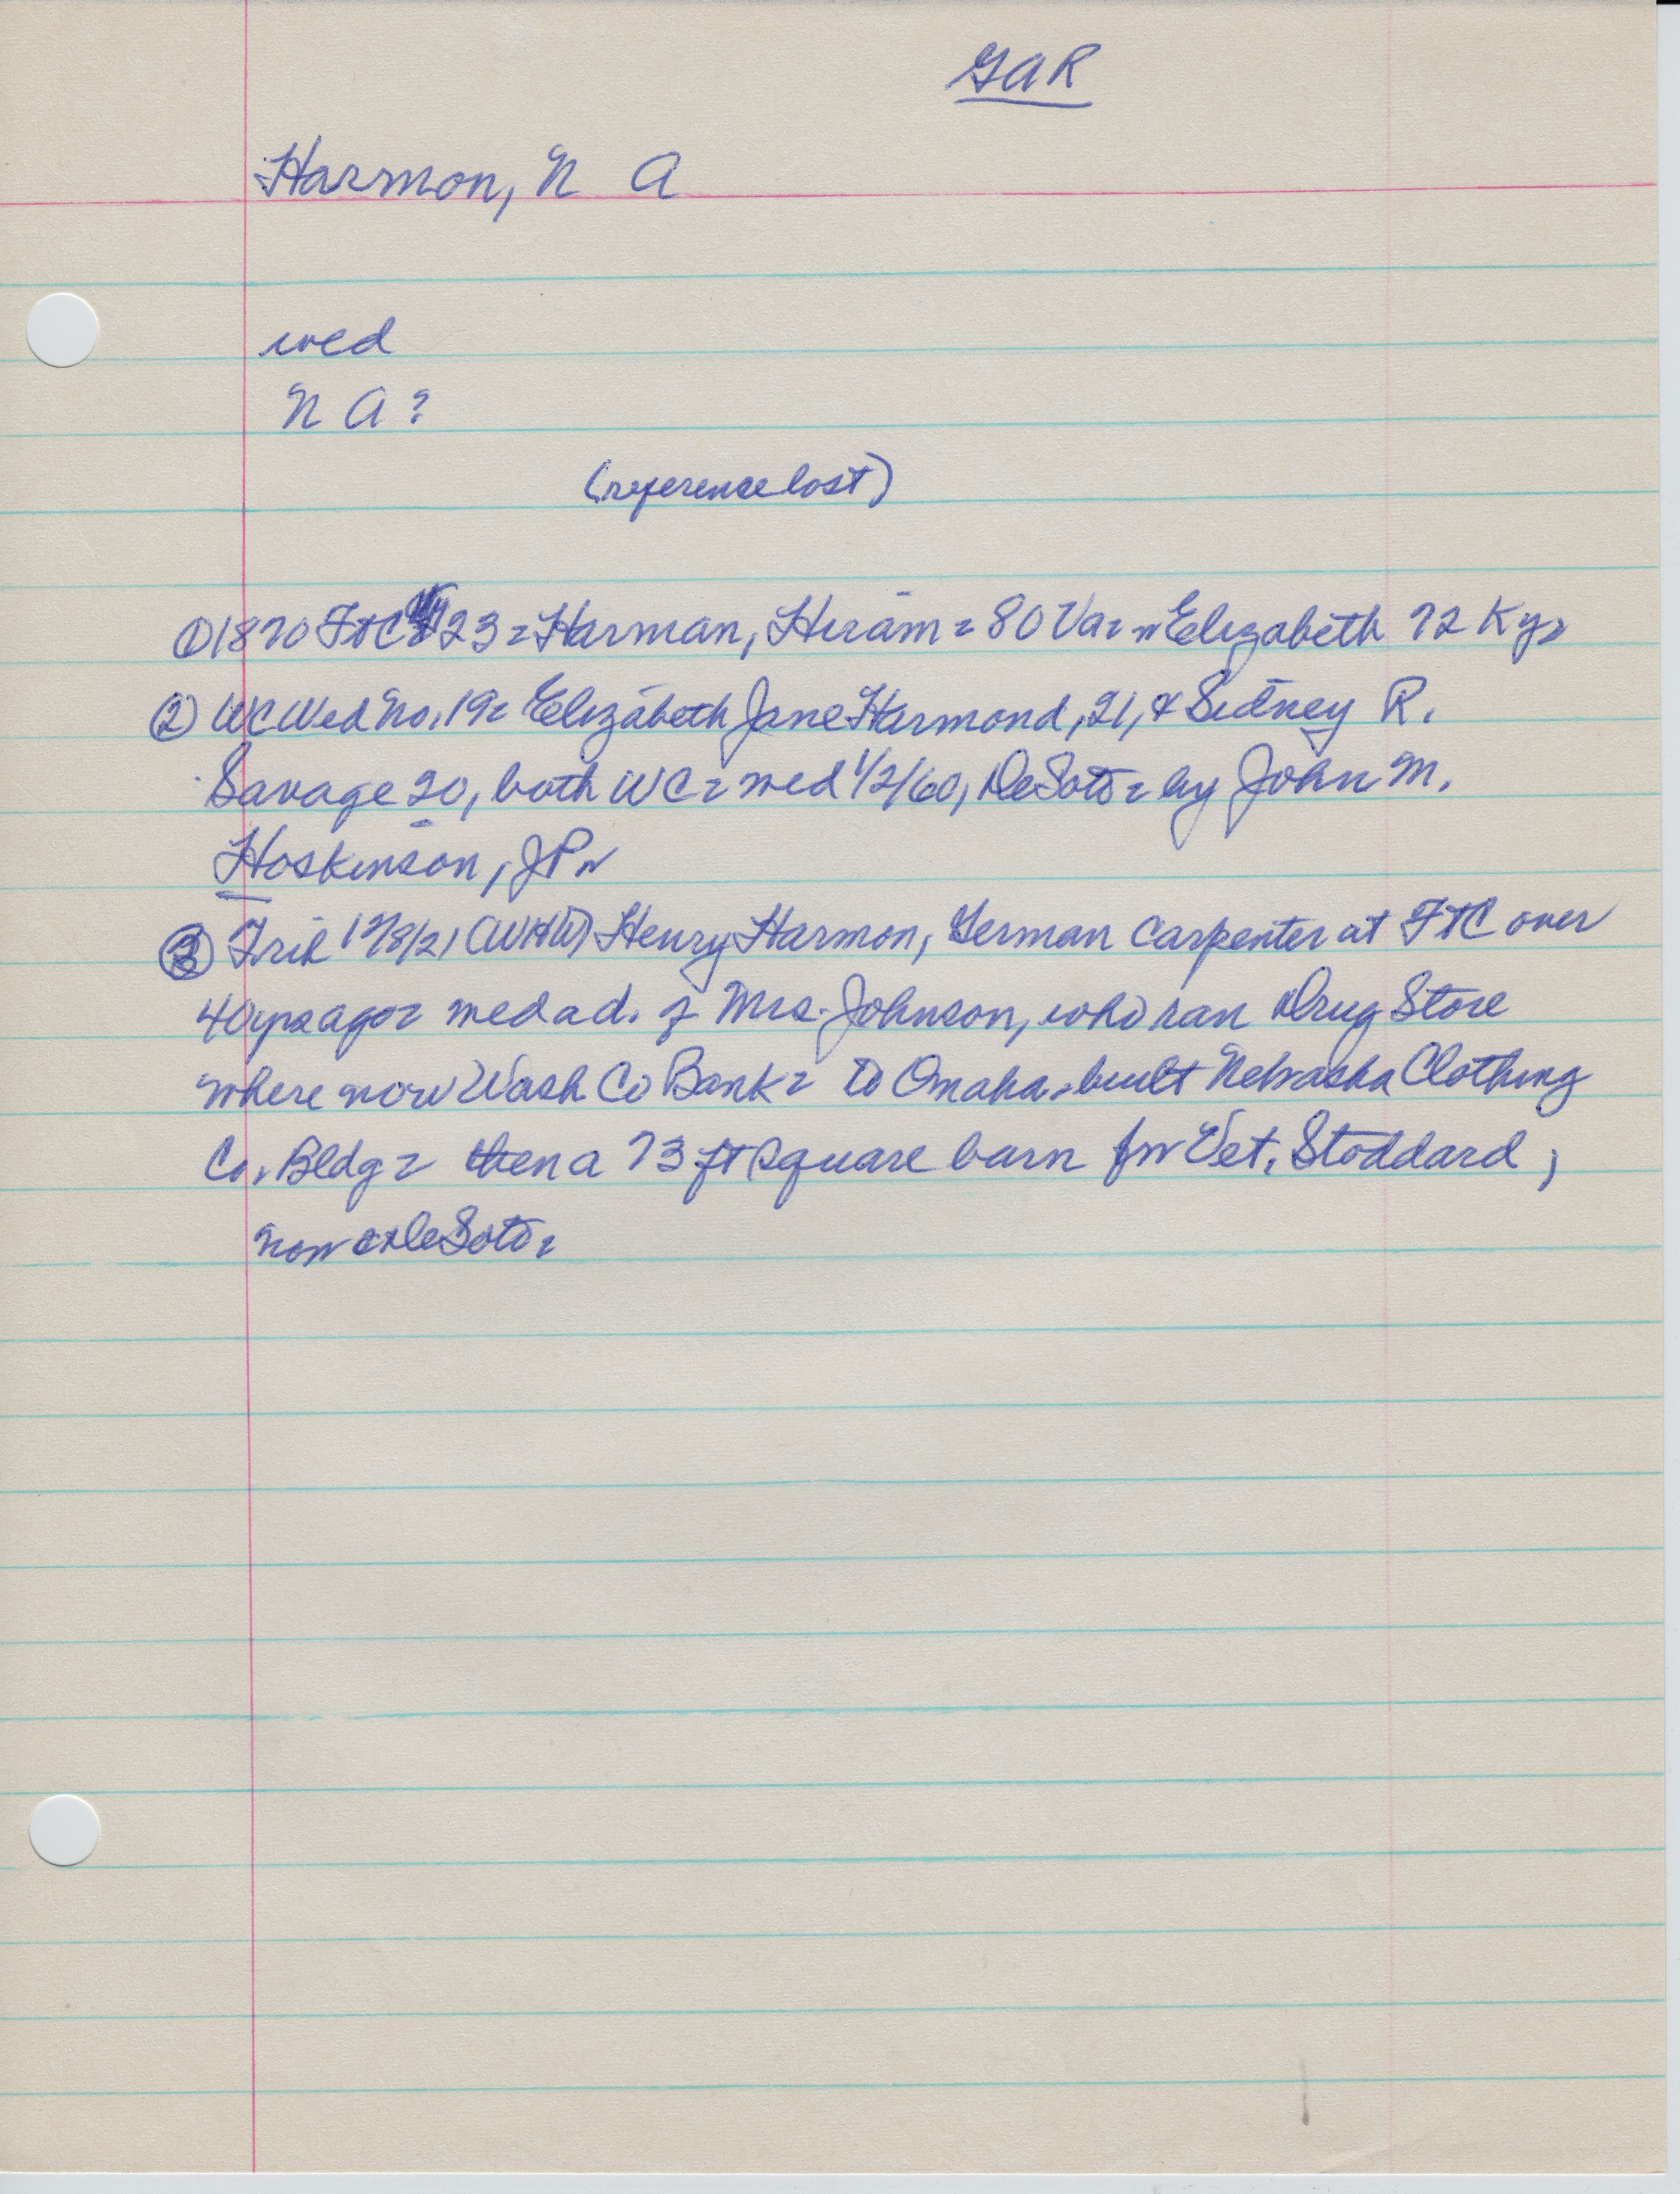 GAR
Harmon, N A
wed
N A?
(reference lost)
① 1870 FtC 23 = Harman, Hiram = 80 Va = Elizabeth 72 Ky =
② WC Wed No. 19 = Elizabeth Jane Harmond, 21, & Sidney R.
Savage 20, both WC = wed 1/2/60, DeSoto = by John M.
Hoskinson, JP
③ Trib 12/8/21 (WHW) Henry Harmon, German carpenter at FtC over
40 yrs ago = wed a d. of Mrs. Johnson, who ran Drug Store
where now Wash Co Bank = to Omaha, built Nebraska Clothing
Co. Bldg = then a 73 ft square barn for Vet. Stoddard,
now DeSoto =